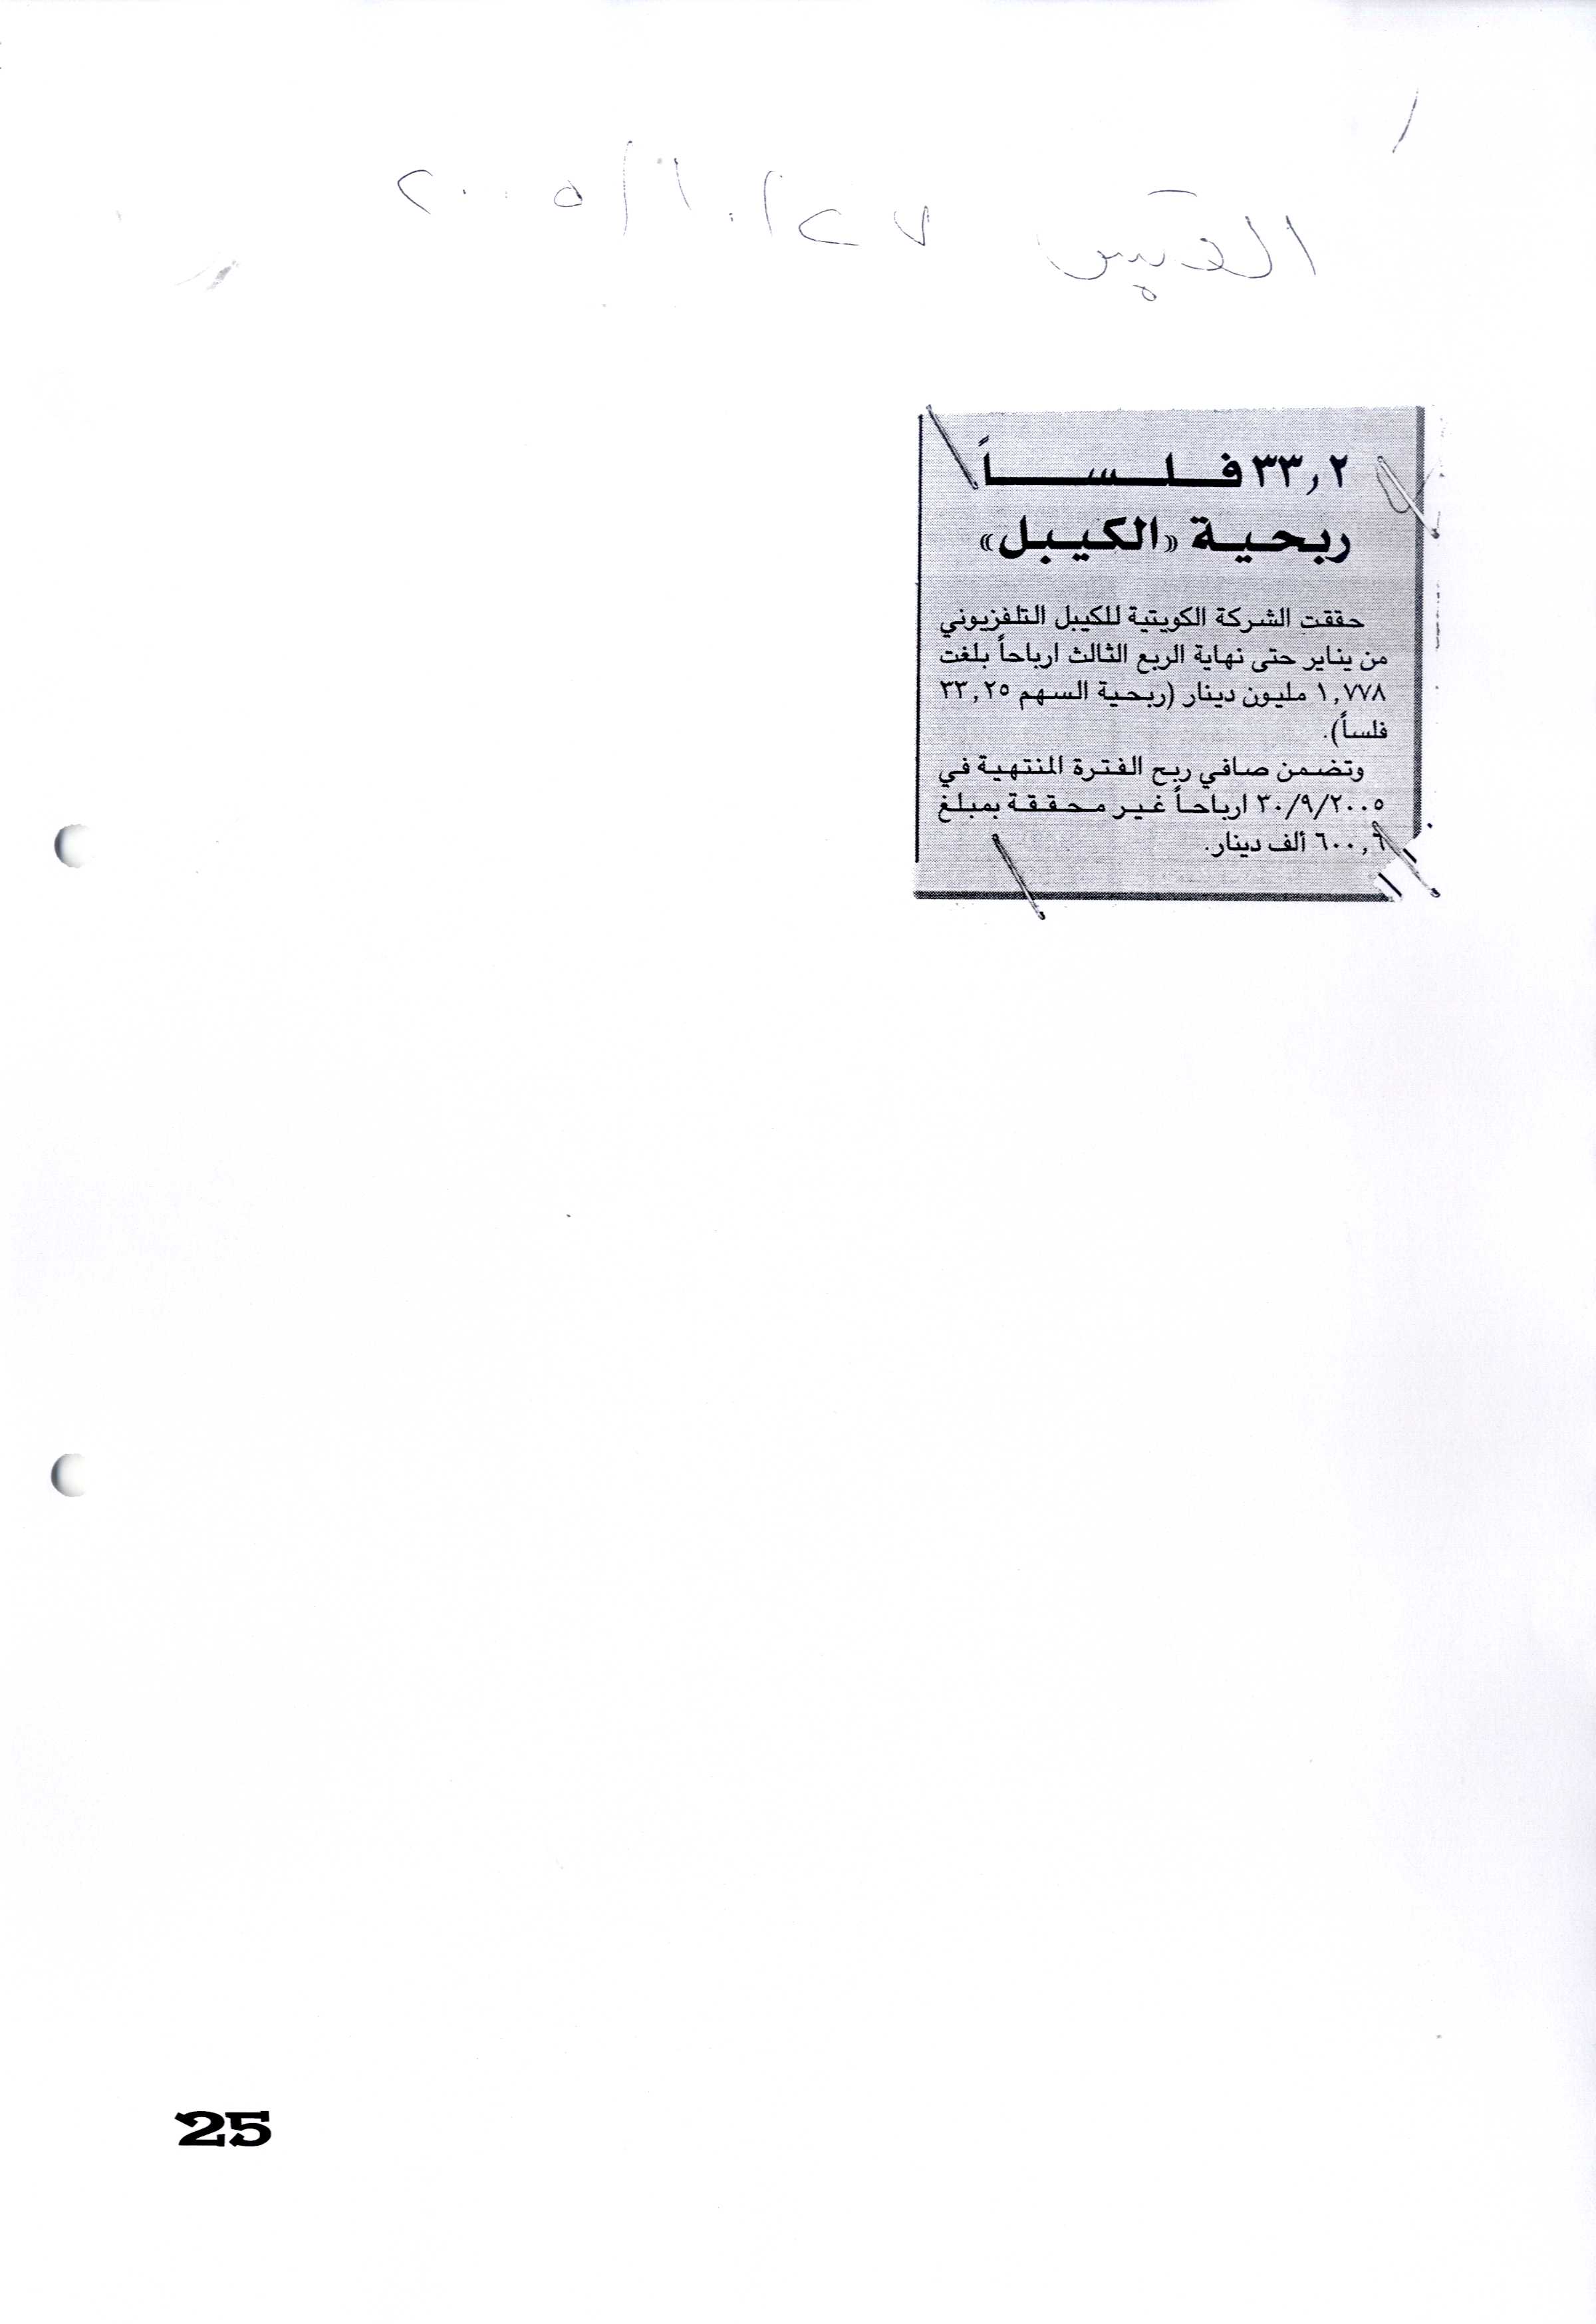 القبس ٢٧/١٠/٢٠٠٥
٣٣,٢ فلساً
ربحية «الكيبل»
حققت الشركة الكويتية للكيبل التلفزيوني
من يناير حتى نهاية الربع الثالث ارباحاً بلغت
١,٧٧٨ مليون دينار (ربحية السهم ٣٣,٢٥
فلساً).
وتضمن صافي ربح الفترة المنتهية في
٣٠/٩/٢٠٠٥ ارباحاً غير محققة بمبلغ
٦٠٠,٦ ألف دينار.
25